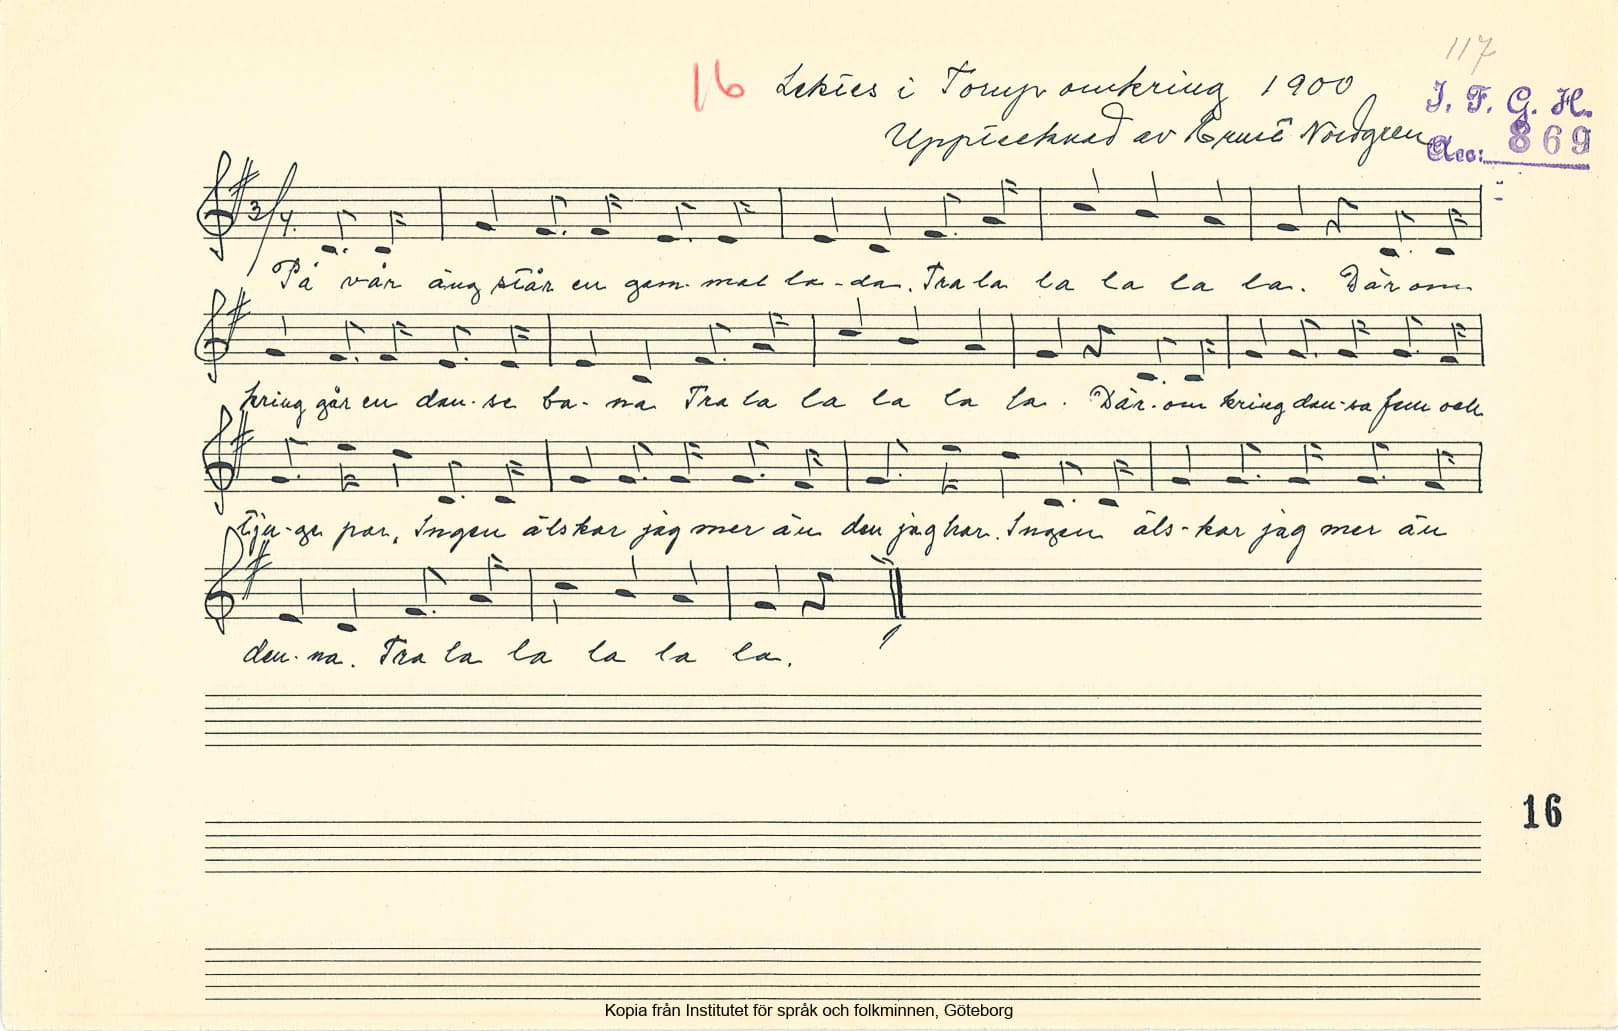 117
16 Lektes i Torup omkring 1900
I. F. G. H.
Upptecknad av Ernst Nordgren
Acc: 869
3/4.
På vår äng står en gam-mal la-da. Tra la la la la la. Där om-
kring går en dan-se ba-na Tra la la la la la. Där-om kring dan-sa fem och
tju-ge par. Ingen älskar jag mer än den jag har. Ingen äls-kar jag mer än
den-na. Tra la la la la la.
16
Kopia från Institutet för språk och folkminnen, Göteborg